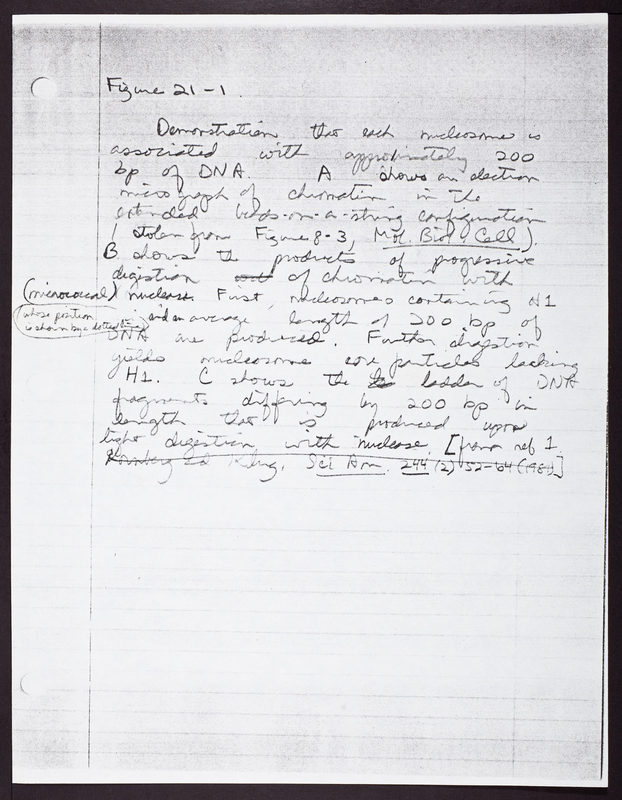 Figure 21-1.
Demonstration that each nucleosome is
associated with approximately 200
bp of DNA. A shows an electron
micrograph of chromatin in the
extended beads-on-a-string configuration
(stolen from Figure 8-3, Mol. Biol. Cell).
B shows the products of progressive
digestion of chromatin with
(micrococcal) nuclease. First, nucleosomes containing H1
(whose position
is shown by a dotted line)
and an average length of 200 bp of
DNA are produced. Further digestion
yields nucleosome core particles lacking
H1. C shows the ladder of DNA
fragments differing by 200 bp in
length that is produced upon
light digestion with nuclease. [from ref 1.
Kornberg and Klug, Sci Am. 244 (2) 52-64 (1981)]